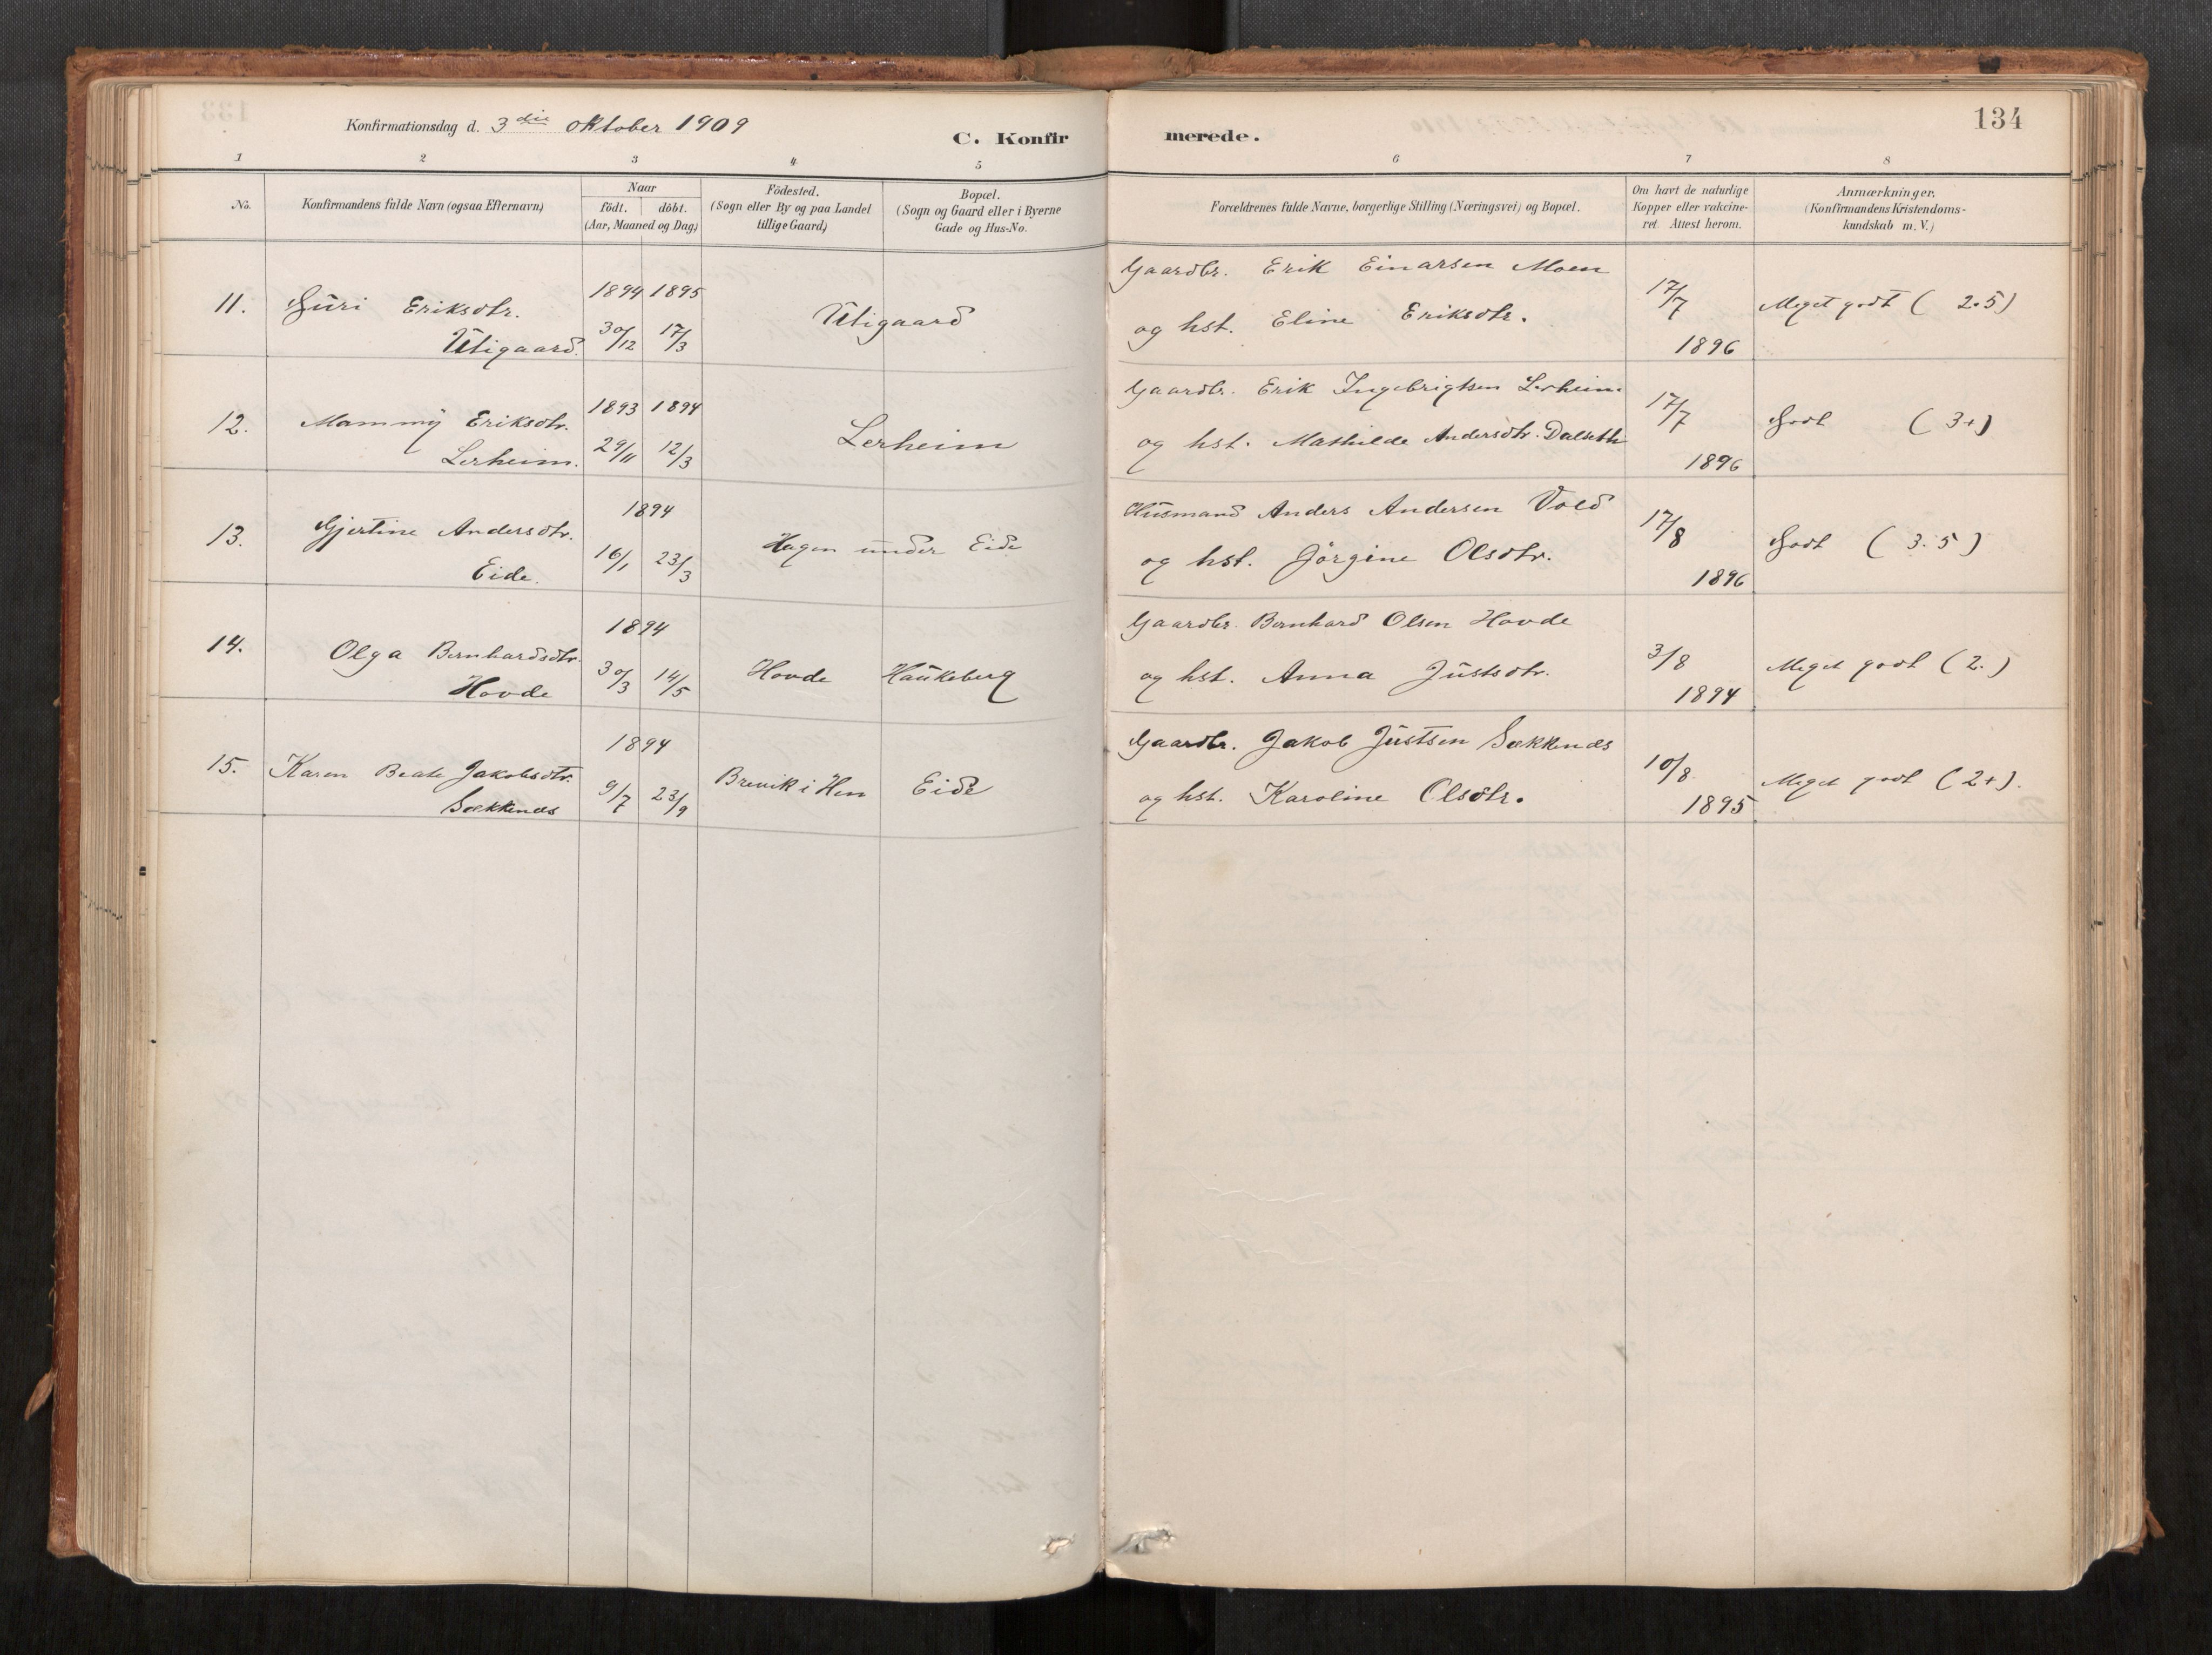 134
Konfirmationsdag d. 3die oktober 1909
C. Konfir merede.
1 2 3 4 5 6 7 8
No.
Konfirmandens fulde Navn (ogsaa Efternavn)
Naar
födt. döbt.
(Aar, Maaned og Dag)
Födested.
(Sogn eller By og paa Landet
tillige Gaard)
Bopæl.
(Sogn og Gaard eller i Byerne
Gade og Hus-No.
Forældrenes fulde Navne, borgerlige Stilling (Næringsvei) og Bopæl.
Om havt de naturlige
Kopper eller vakcine-
ret. Attest herom.
Anmærkninger.
(Konfirmandens Kristendoms-
kundskab m. V.)
11. Guri Eriksdtr. 1894 1895 Utigaard
Utigaard. 30/12 17/3
Gaardbr. Erik Einarsen Moen
og hst. Eline Eriksdtr.
17/7 1896
Meget godt (2.5)
12. Mammy Eriksdtr. 1893 1894 Lerheim
Lerheim. 29/11 12/3
Gaardbr. Erik Ingebrigtsen Lerheim
og hst. Mathilde Andersdtr. Dalseth
17/7 1896
Godt (3+)
13. Gjertine Andersdtr. 1894
Eide. 16/1 23/3 Hagen under Eide
Husmand Anders Andersen Vold
og hst. Jörgine Olsdtr.
17/8 1896
Godt (3.5)
14. Olga Bernhardsdtr. 1894
Hovde 30/3 14/5 Hovde Haukeberg
Gaardbr. Bernhard Olsen Hovde
og hst. Anna Justsdtr.
3/8 1894
Meget godt (2.)
15. Karen Beate Jakobsdtr. 1894
Sækkenæs 9/7 23/9 Brevik i Hen Eide
Gaardbr. Jakob Justsen Sækkenæs
og hst. Karoline Olsdtr.
10/8 1895
Meget godt (2+).